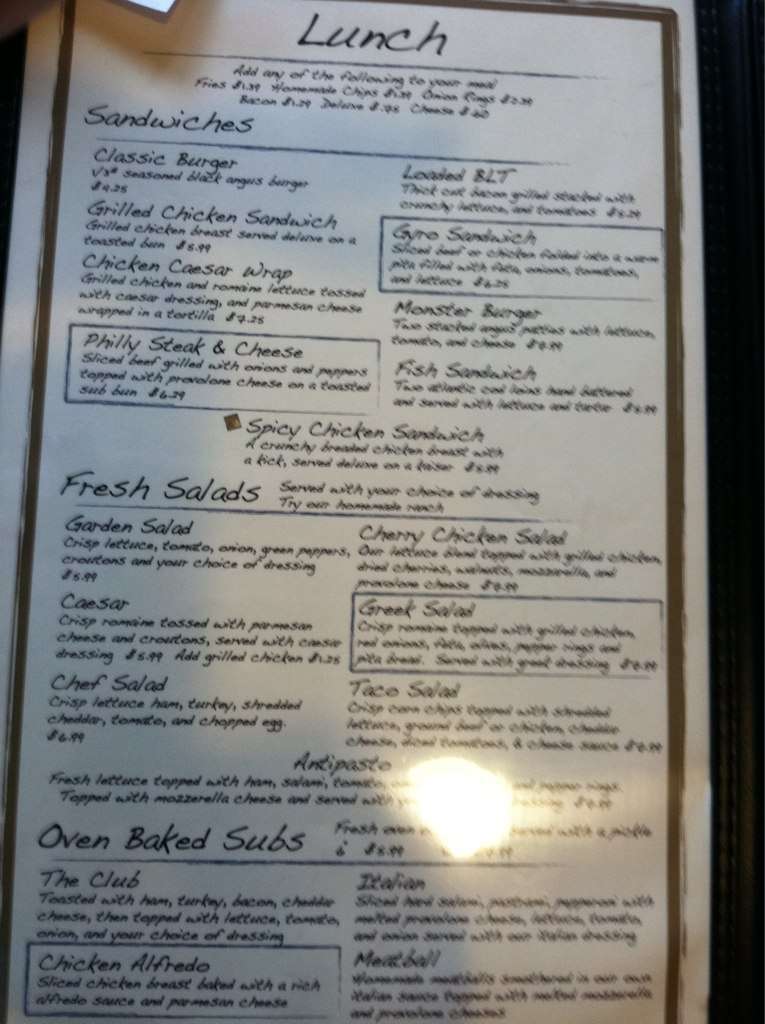 Lunch
Add any of the following to your meal
Fries $1.39 Homemade Chips $1.39 Onion Rings $2.39
Bacon $1.29 Deluxe $.75 Cheese $.60
Sandwiches
Classic Burger
1/3# seasoned black angus burger
$4.25
Grilled Chicken Sandwich
Grilled chicken breast served deluxe on a
toasted bun $5.99
Chicken Caesar Wrap
Grilled chicken and romaine lettuce tossed
with caesar dressing, and parmesan cheese
wrapped in a tortilla $7.25
Philly Steak & Cheese
Sliced beef grilled with onions and peppers
topped with provolone cheese on a toasted
sub bun $6.29
Loaded BLT
Thick cut bacon grilled stacked with
crunchy lettuce, and tomatoes $5.29
Gyro Sandwich
Sliced beef or chicken folded into a warm
pita filled with feta, onions, tomatoes,
and lettuce $6.25
Monster Burger
Two stacked angus patties with lettuce,
tomato, and cheese
Fish Sandwich
Two atlantic cod loins hand battered
and served with lettuce and tartar $8.99
Spicy Chicken Sandwich
A crunchy breaded chicken breast with
a kick, served deluxe on a kaiser $5.99
Fresh Salads
Served with your choice of dressing
Try our homemade ranch
Garden Salad
Crisp lettuce, tomato, onion, green peppers,
croutons and your choice of dressing
$5.99
Caesar
Crisp romaine tossed with parmesan
cheese and croutons, served with caesar
dressing $5.99 Add grilled chicken $1.25
Chef Salad
Crisp lettuce ham, turkey, shredded
cheddar, tomato, and chopped egg.
$6.99
Cherry Chicken Salad
Our lettuce blend topped with grilled chicken,
dried cherries, walnuts, mozzarella, and
provolone cheese
Greek Salad
Crisp romaine topped with grilled chicken,
red onions, feta, olives, pepper rings and
pita bread. Served with greek dressing
Taco Salad
Crisp corn chips topped with shredded
lettuce, ground beef or chicken, cheddar
cheese, diced tomatoes, & cheese sauce
Antipasto
Fresh lettuce topped with ham, salami, tomato, and pepper rings.
Topped with mozzarella cheese and served with
Oven Baked Subs
Fresh oven served with a pickle
The Club
Toasted with ham, turkey, bacon, cheddar
cheese, then topped with lettuce, tomato,
onion, and your choice of dressing
Chicken Alfredo
Sliced chicken breast baked with a rich
alfredo sauce and parmesan cheese
Italian
Sliced hard salami, pastrami, pepperoni with
melted provolone cheese, lettuce, tomato,
and onion served with our italian dressing
Meatball
Homemade meatballs smothered in our own
italian sauce topped with melted mozzarella
and provolone cheeses